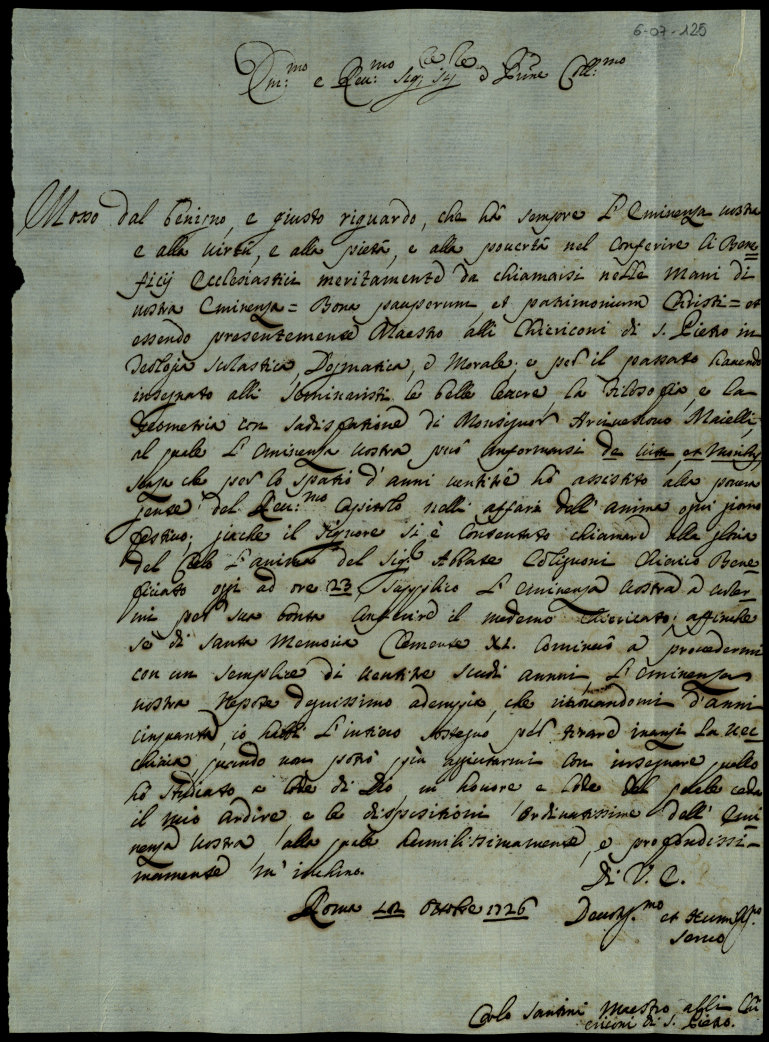 6-07-125
Em:mo e Reu:mo Sig:
Mosso dal benigno, e giusto riguardo, che hà sempre L'Eminenza uostra
e alla uirtù, e alla pietà, e alla pouertà nel conferire li Bene=
ficij Ecclesiastici meritamente da chiamarsi nelle mani di
uostra Eminenza = Bona pauperum et patrimonium Christi = et
essendo presentemente Maestro alli Chiericoni di S. Pietro in
Teologia Scolastica, Dogmatica, e Morale; e per il passato hauendo
insegnato alli Seminaristi le belle lettere, la Filosofia, e la
Geometria con sadisfatione di Monsignor Arciuescouo Maielli,
al quale L'Eminenza uostra può informarsi de uita, et Moribus,
senza che per lo spatio d'anni uentitre hò assistito alla pouera
gente del Reu:mo Capitolo nelli affari dell'anima ogni giorno
festiuo; giache il Signore si è Contentato chiamare alla gloria
del Cielo L'anima del Sig: Abbate Chierico Bene=
ficiato oggi ad ore 23, supplico L'Eminenza uostra a
mi per sua bontà conferire il medemo Chiericato; affinche
se di Santa Memoria Clemente XI. cominciò a prouedermi
con un semplice di uentitre scudi annui, L'Eminenza
uostra Nepote degnissimo adempia, che ritrouandomi d'anni
cinquanta, io habbi L'intiero sostegno per tirare inanzi la uec=
chiaia, quando non potrò più aggiutarmi con insegnare quello
hò studiato a lode di Dio, in honore e lode del quale ceda
il mio ardire e le dispositioni ordinatissime dell'Emi=
nenza uostra alla quale humilissimamente, e profondissi=
mamente m'inchino.
Di V. E.
Roma Ottobre 1726 Deuotiss:mo et Humiliss:mo
Seruo
Carlo Santini Maestro alli Chi=
ericoni di S. Pietro.